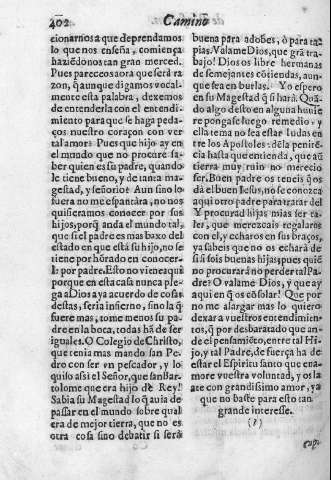 402 Camino
cionarnos a que deprendamos
lo que nos enseña, comiença
haziẽdonos tan gran merced.
Pues pareceos aora que será ra
zon, q̃ aunque digamos vocal-
mente esta palabra, dexemos
de entenderla con el entendi-
miento para que se haga peda-
ços nuestro coraçon con ver
tal amor? Pues que hijo ay en
el mundo que no procure sa-
ber quien es su padre, quando
le tiene bueno, y de tanta ma-
gestad, y señorio? Aun sino lo
fuera no me espantàra, no nos
quisieramos conocer por sus
hijos, porq̃ anda el mundo tal,
que si el padre es mas baxo del
estado en que está su hijo, no se
tiene por hõrado en conocer-
le por padre. Esto no viene aqui
porque en esta casa nunca ple-
ga a Dios aya acuerdo de cosas
destas, seria infierno, sino la q̃
fuere mas, tome menos su pa-
dre en la boca, todas hã de ser
iguales. O Colegio de Christo,
que tenia mas mando san Pe-
dro con ser vn pescador, y lo
quiso assi el Señor, que san Bar-
tolome que era hijo de Rey!
Sabia su Magestad lo q̃ auia de
passar en el mundo sobre qual
era de mejor tierra, que no es
otra cosa sino debatir si será
buena para adobes, ò para ta-
pias. Valame Dios, que grã tra-
bajo! Dios os libre hermanas
de semejantes cõtiendas, aun-
que sea en burlas. Yo espero
en su Magestad q̃ si hará. Quã-
do algo desto en alguna huuie
re pongase luego remedio, y
ella tema no sea estar Iudas en-
tre los Apostoles: dẽla penitẽ-
cia hasta que entienda, que aũ
tierra muy ruin no merecio
ser. Buen padre os teneis q̃ os
dá el buen Iesus, no se conozca
aqui otro padre para tratar del
Y procurad hijas mias ser ta-
les, que merezcais regalaros
con el, y echaros en sus braços,
ya sabeis que no os echará de
si si sois buenas hijas; pues quiẽ
no procurará no perder tal Pa-
dre? O valame Dios, y que ay
aqui en q̃ os cõsolar! Que por
no me alargar mas lo quiero
dexar a vuestros entendimien-
tos, q̃ por desbaratado que an-
de el pensamiẽto, entre tal Hi-
jo, y tal Padre, de fuerça ha de
estar el Espiritu santo que ena-
more vuestra voluntad, y os la
ate con grandissimo amor, ya
que no baste para esto tan
grande interesse.
(?)